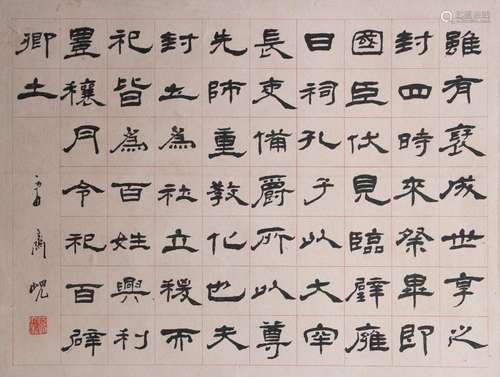 雖有襃成世享之
封四時來祭畢即
國臣伏見臨辟雍
日祠孔子以大宰
長吏備爵所以尊
先師重教化也夫
封土為社立稷而
祀皆為百姓興利
豊穰月令祀百辟
卿士